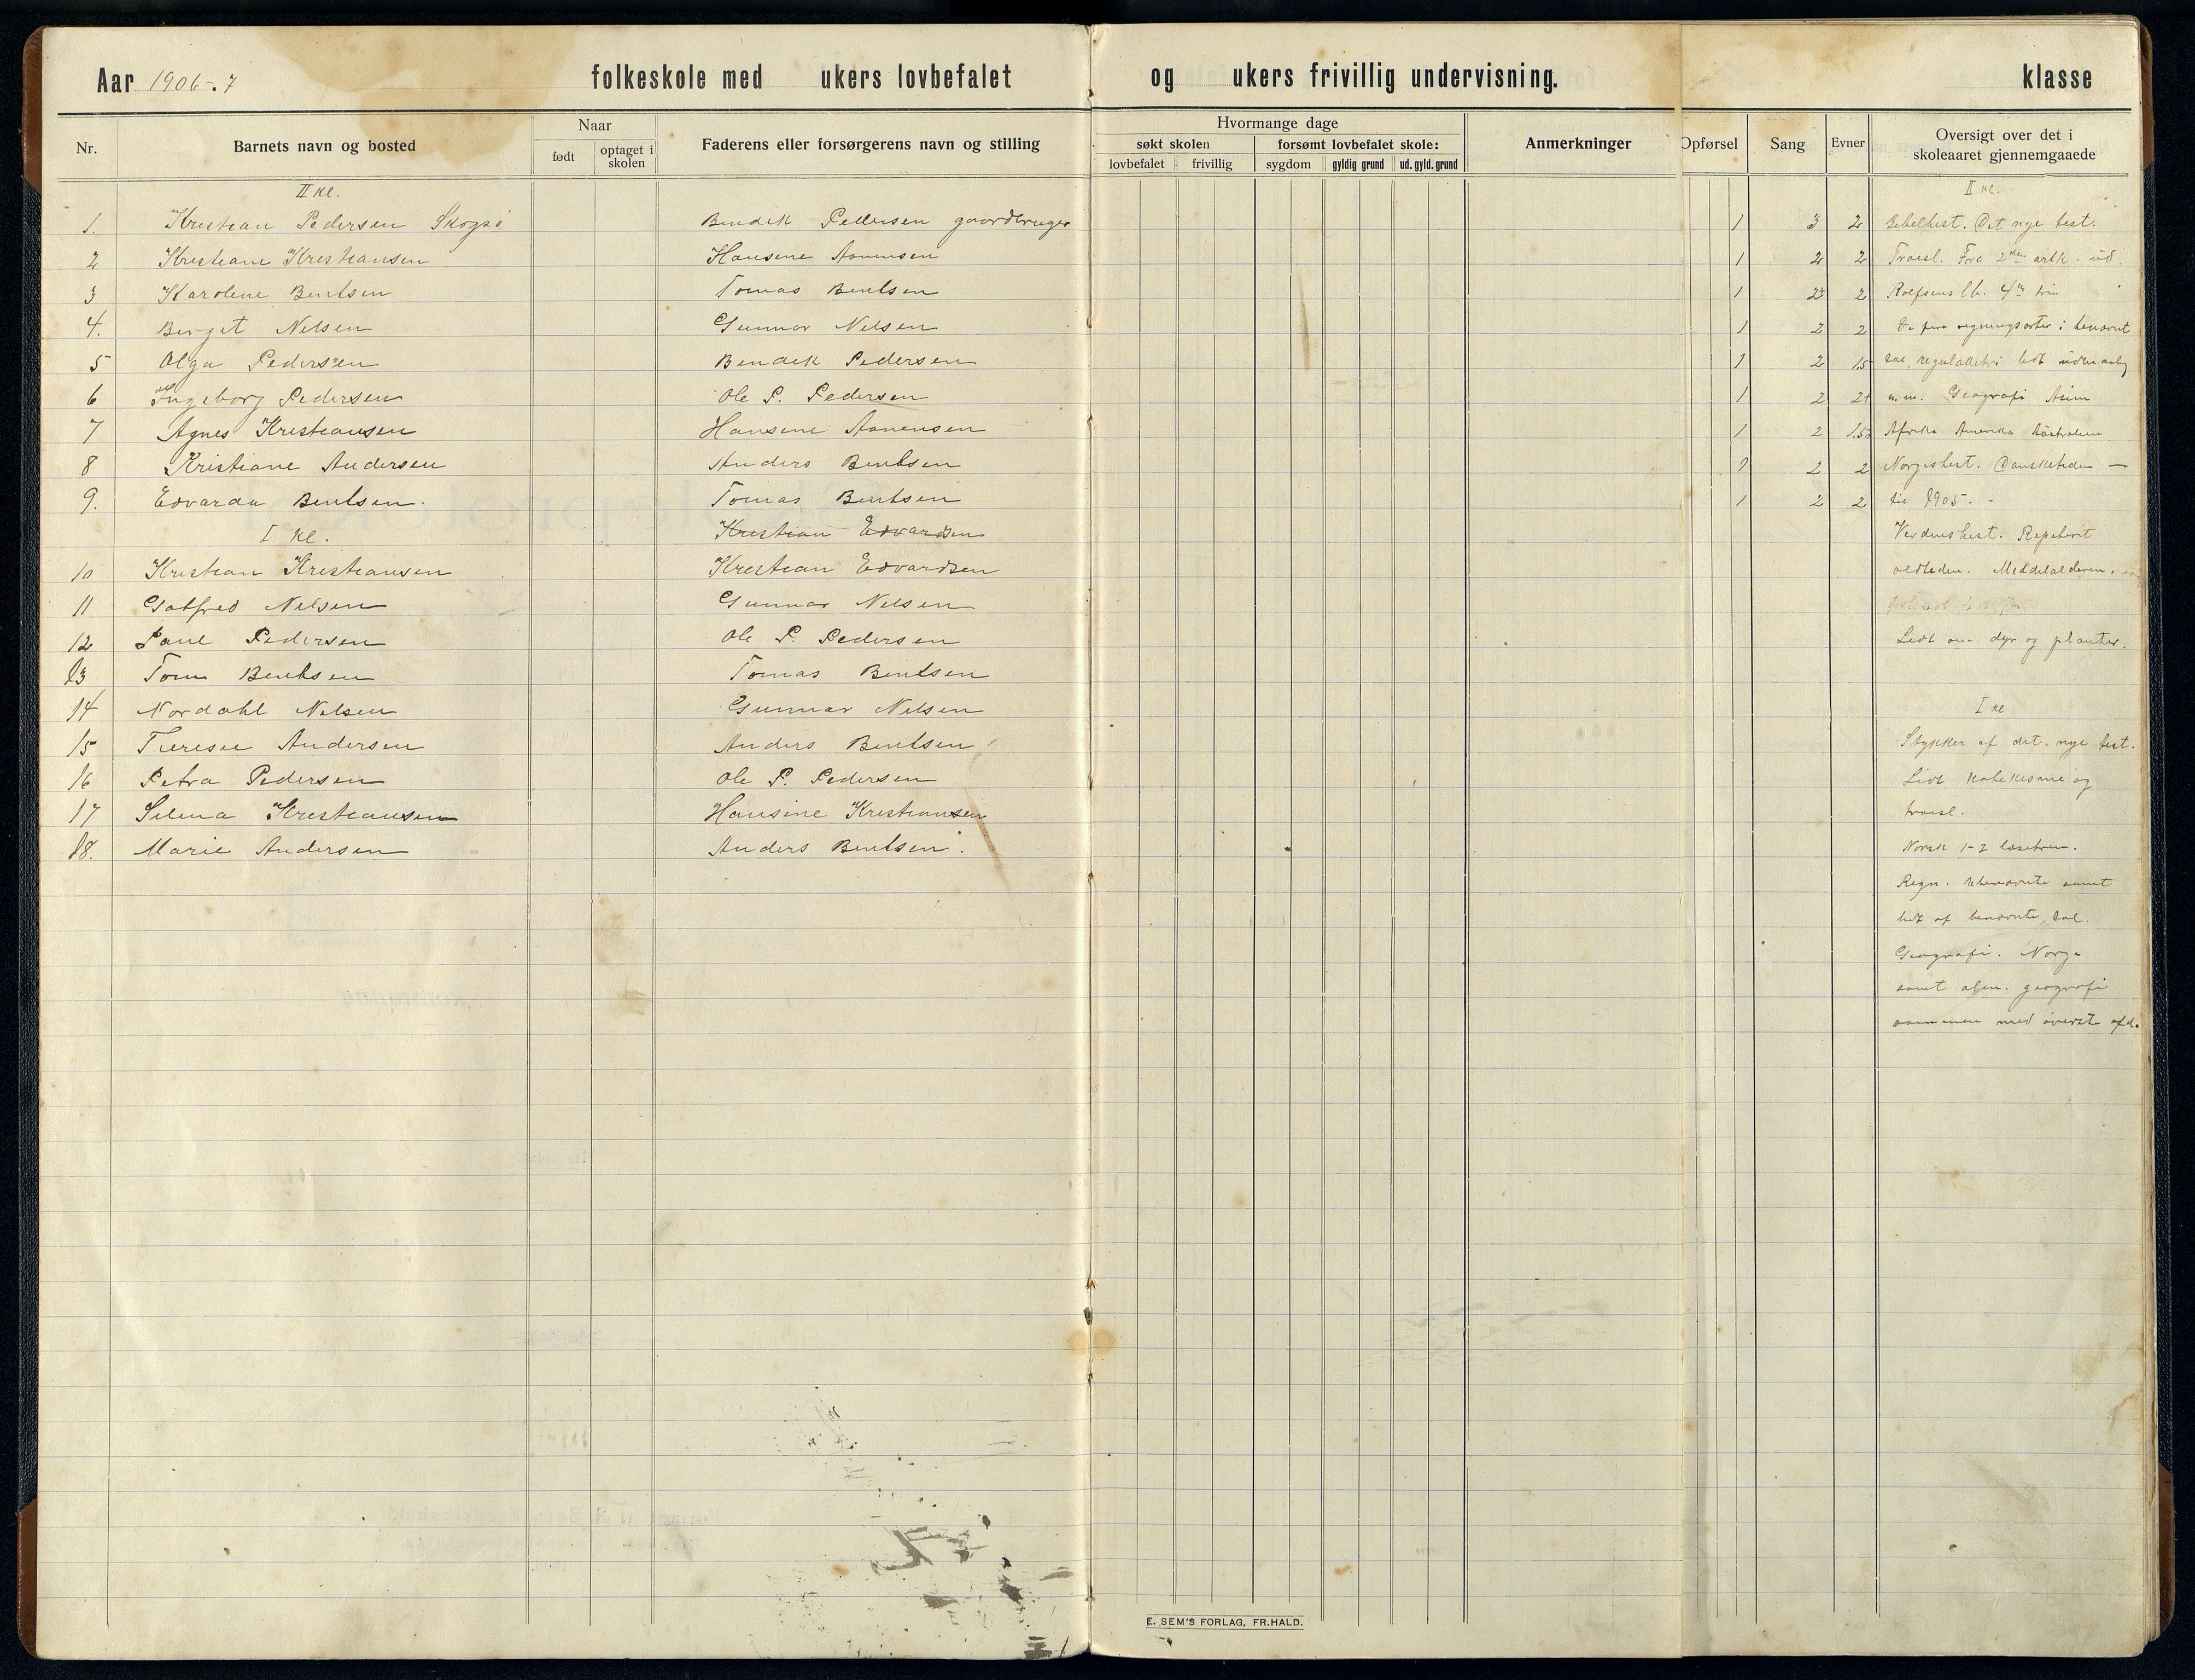 Aar 1906-7 folkeskole med ukers lovbefalet og ukers frivillig undervisning. klasse
Nr. Barnets navn og bosted Naar født optaget i skolen Faderens eller forsørgerens navn og stilling
Hvormange dage søkt skolen lovbefalet frivillig forsømt lovbefalet skole: sygdom gyldig grund ud. gyld. grund Anmerkninger
Opførsel Sang Evner Oversigt over det i skoleaaret gjennemgaaede
II kl. II kl.
1. Kristian Pedersen Skogsö Bendik Pedersen gaardbruger 1 3 2 Bibelhist. Det nye test.
2 Kristiane Kristiansen Hansine Aanensen 1 2 2 Troesl. Fra 2den artk. ud.
3 Karoline Bentsen Tomas Bentsen 1 2+ 2 Rolfsens lb. 4de trin
4. Berget Nelsen Gunnar Nelsen 1 2 2 De fire regningsarter i benævnt
5 Olga Pedersen Bendik Pedersen 1 2 1,5 tal, reguladetri lidt udmaaling
6 Ingeborg Pedersen Ole P. Pedersen 1 2 2+ m.m. Geografi Asien
7 Agnes Kristiansen Hansine Aanensen 1 2 1,5 Afrika Amerika Australien
8 Kristiane Andersen Anders Bentsen 1 2 2 Norgeshist. Dansketiden —
9. Edvarda Bentsen. Tomas Bentsen 1 2 2 til 1905. -
I kl. Kristian Edvardsen Verdenshist. Repetert
10 Kristian Kristiansen Kristian Edvardsen oldtiden. Middelalderen.
11 Gotfred Nelsen Gunnar Nelsen
12 Paul Pedersen Ole P. Pedersen Lidt om dyr og planter.
13 Tom Bentsen Tomas Bentsen
14 Nordahl Nelsen Gunnar Nelsen I kl
15 Teresie Andersen Anders Bentsen Stykker af det. nye test.
16 Petra Pedersen Ole P. Pedersen Lidt katekisme og
17 Selma Kristiansen Hansine Kristiansen troesl.
18. Marie Andersen Anders Bentsen. Norsk 1-2 læsetrin.
Regn. ubenævnte samt
lidt af benævnte tal.
Geografi. Norge
samt alm. geografi
sammen med øverste afd.
E. SEM'S FORLAG, FR.HALD.